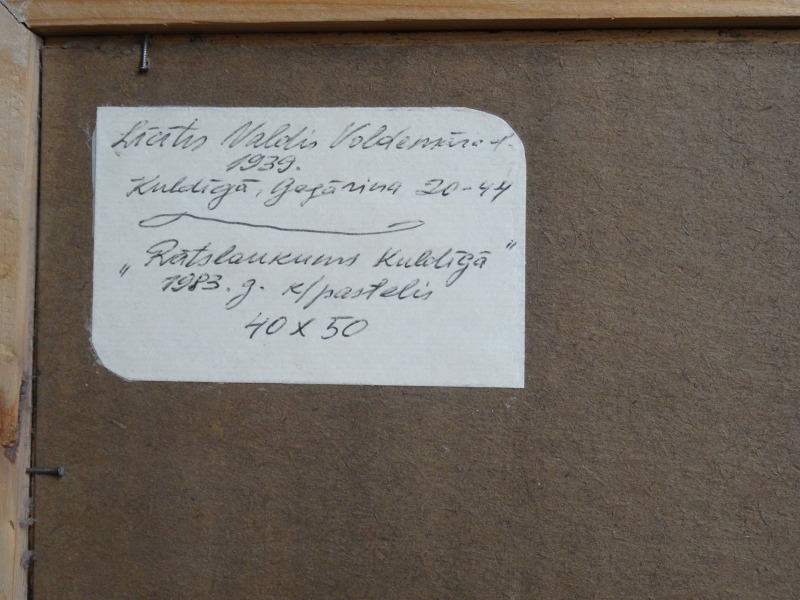 Valdis Voldemāra d.
1939.
Kuldīgā, Gagārina 20-44
"Rātslaukums Kuldīgā"
1983. g. k/pastelis
40 x 50